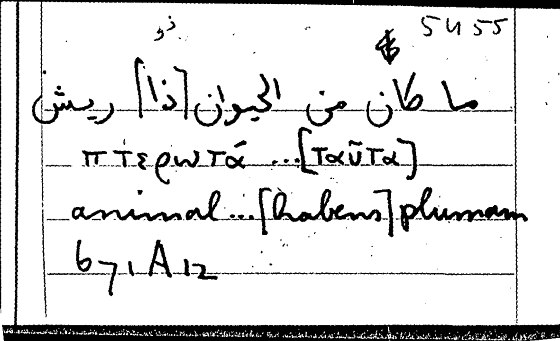 5455
ذو
ما كان من الحيوان [ذا] ريش
πτερωτά ...[ταῦτα]
animal...[habens] plumam
671, A 12